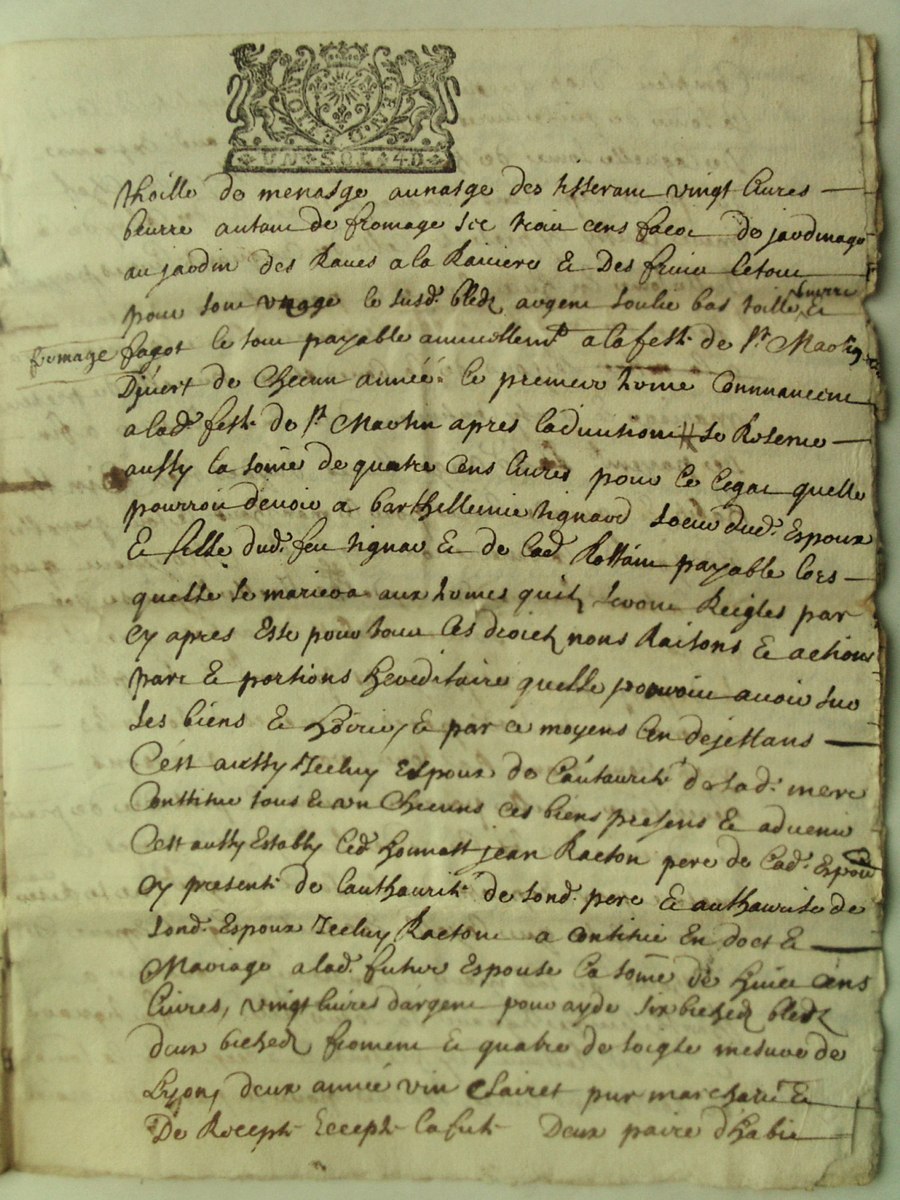 LION GEN.D.
UN SOL 4D
thoille de menasge aunasge des tisseram vingt livres
beurre autam de fromage six cens fagoc de jardinage
au jardin des Raves a la Raviere & Des fruic le tou
pour son usage le susd. bledz argent soulie bas toille beurre &
fromage fagot le tou payable annuellemt a la feste de st Martin
D'hivert de Checun année. le premier terme Commancem
a lad. feste de st Martin apres la se Reserve
aussy la some de quatre cens livres pour le legac quelle
pourroi devoir a barthellemie tignaud soeur dud. Espoux
& fille dud. feu tignau & de lad. payable lors
quelle se mariera aux termes quil seron Reigles par
cy apres Esse pour tous ces droictz noms Raisons & actions
parc & portions hereditaire quelle pouvoi avoir sur
les biens & hoirie, & par ce moyens
C'est aussy Jceluy Espoux de l'autaurite de sad. mere
Constitue tous & un Checuns ces biens presens & advenir
C'est aussy Estably led. honnest jean Racton pere de lad. Espouse
cy present de l'authaurite de sond. pere & authaurise de
sond. Espoux Jceluy Racton a Contitue En doct &
Mariage a lad. futur Espouse la some de huict cens
livres, vingt livres d'argent pour ayde six bichedz bledz
deux bichedz froment & quatre de soigle mesure de
Lyon, deux année vin Clairet pur marchand &
De Recepte Ecepte la fute Deux paire d'habic